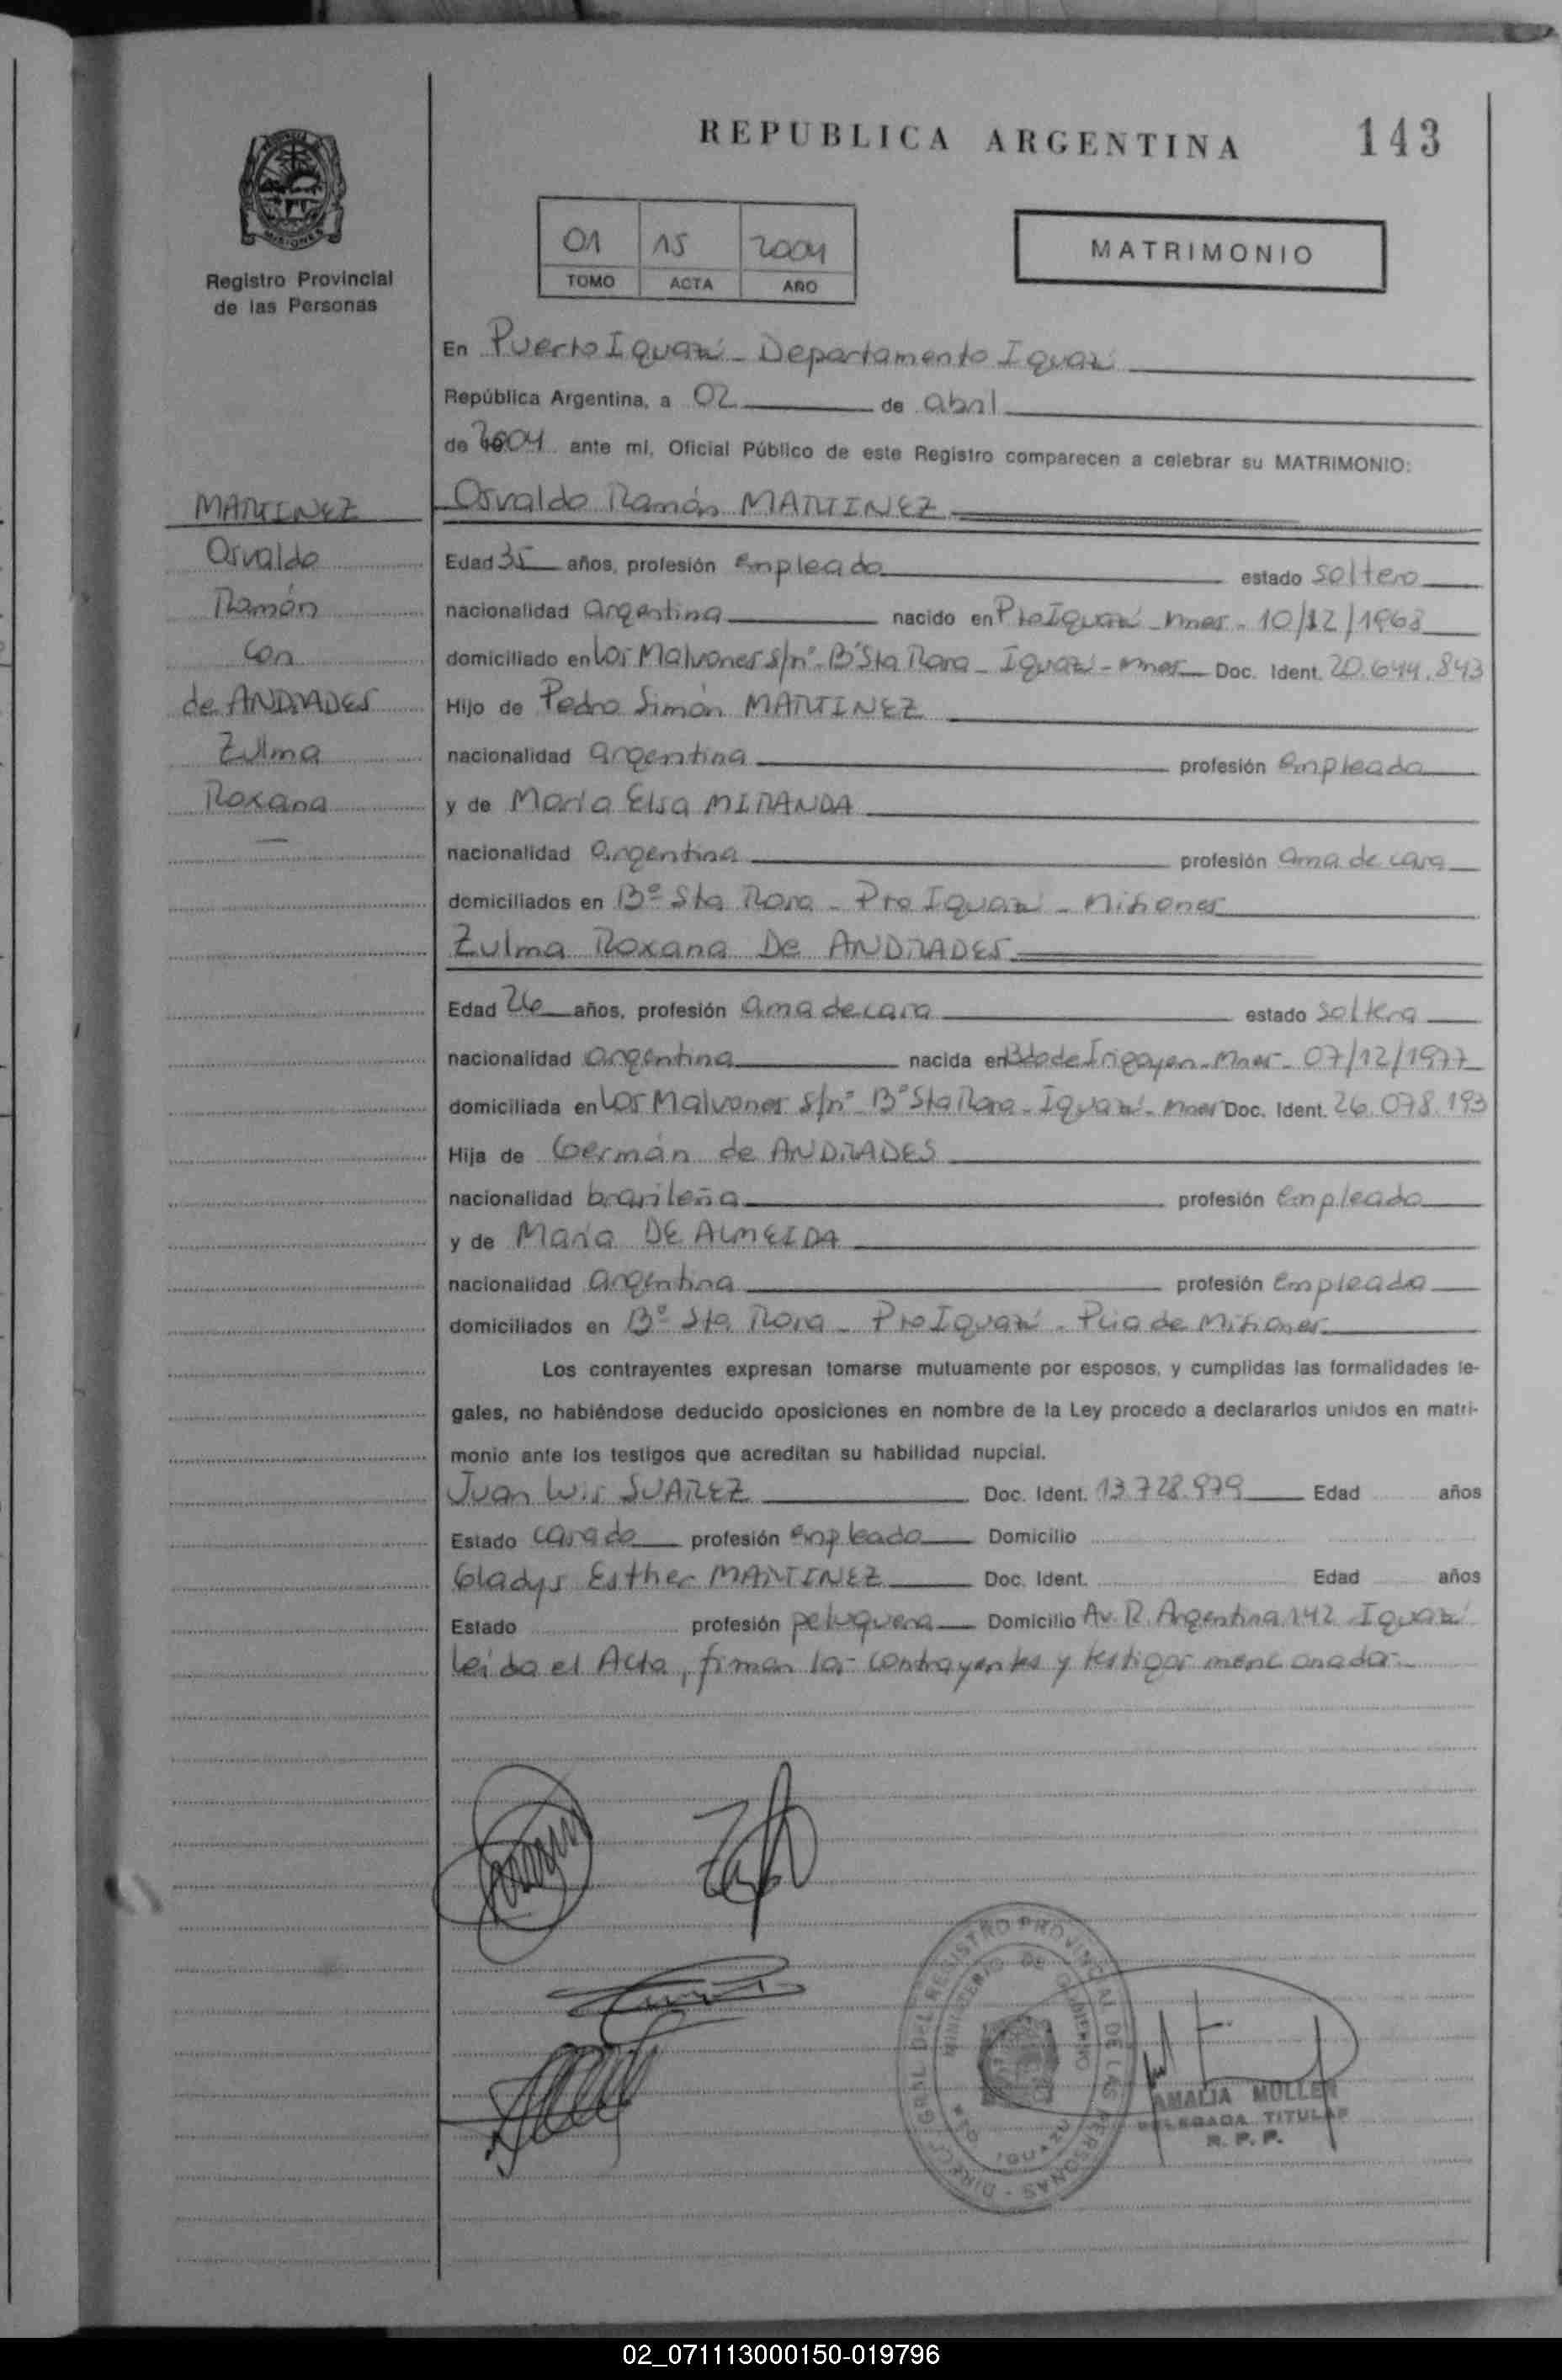 REPUBLICA ARGENTINA
143
MISIONES
Registro Provincial
de las Personas
01 15 2004
TOMO ACTA AÑO
MATRIMONIO
En Puerto Iguazú - Departamento Iguazú
República Argentina, a 02 de abril
de 2004 ante mí, Oficial Público de este Registro comparecen a celebrar su MATRIMONIO:
MARTINEZ
Osvaldo
Ramón
con
de ANDRADES
Zulma
Roxana
Osvaldo Ramón MARTINEZ
Edad 35 años, profesión empleado estado soltero
nacionalidad argentina nacido en Pto Iguazú - Mnes - 10/12/1968
domiciliado en Los Malvones s/nº - Bº Sta Rosa - Iguazú - Mnes Doc. Ident. 20.644.843
Hijo de Pedro Simón MARTINEZ
nacionalidad argentina profesión empleado
y de María Elsa MIRANDA
nacionalidad argentina profesión ama de casa
domiciliados en Bº Sta Rosa - Pto Iguazú - Misiones
Zulma Roxana De ANDRADES
Edad 26 años, profesión ama de casa estado soltera
nacionalidad argentina nacida en Bdo de Irigoyen - Mnes - 07/12/1977
domiciliada en Los Malvones s/nº Bº Sta Rosa - Iguazú - Mnes Doc. Ident. 26.078.193
Hija de Germán de ANDRADES
nacionalidad brasileña profesión empleado
y de María DE ALMEIDA
nacionalidad argentina profesión empleada
domiciliados en Bº Sta Rosa - Pto Iguazú - Pcia de Misiones
Los contrayentes expresan tomarse mutuamente por esposos, y cumplidas las formalidades le-
gales, no habiéndose deducido oposiciones en nombre de la Ley procedo a declararlos unidos en matri-
monio ante los testigos que acreditan su habilidad nupcial.
Juan Luis SUAREZ Doc. Ident. 13.728.979 Edad años
Estado casado profesión empleado Domicilio
Gladys Esther MARTINEZ Doc. Ident. Edad años
Estado profesión peluquera Domicilio Av. R. Argentina 142 Iguazú
Leída el Acta, firman los contrayentes y testigos mencionados
DIREC. GRAL DEL REGISTRO PROVINCIAL DE LAS PERSONAS
MINISTERIO DE GOBIERNO
IGUAZU
AMALIA MULLER
DELEGADA TITULAR
R. P. P.
02_071113000150-019796